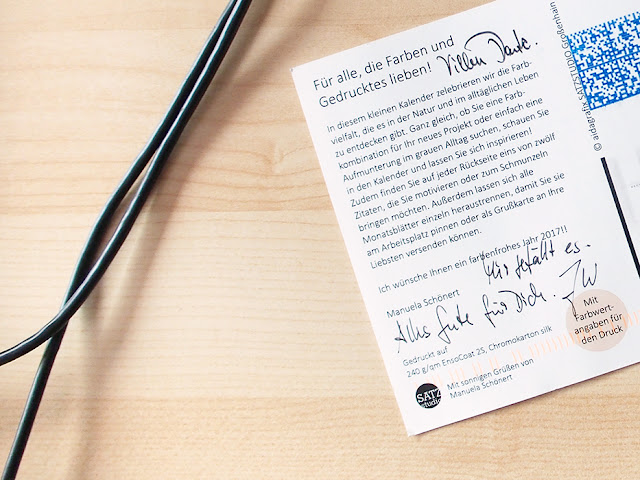 Für alle, die Farben und
Gedrucktes lieben! Vielen Dank.
In diesem kleinen Kalender zelebrieren wir die Farb-
vielfalt, die es in der Natur und im alltäglichen Leben
zu entdecken gibt. Ganz gleich, ob Sie eine Farb-
kombination für Ihr neues Projekt oder einfach eine
Aufmunterung im grauen Alltag suchen, schauen Sie
in den Kalender und lassen Sie sich inspirieren!
Zudem finden Sie auf jeder Rückseite eins von zwölf
Zitaten, die Sie motivieren oder zum Schmunzeln
bringen möchten. Außerdem lassen sich alle
Monatsblätter einzeln heraustrennen, damit Sie sie
am Arbeitsplatz pinnen oder als Grußkarte an Ihre
Liebsten versenden können.
Ich wünsche Ihnen ein farbenfrohes Jahr 2017!!
Mir gefällt es.
Manuela Schönert
Alles Gute für Dich. JW
Gedruckt auf
240 g/qm EnsoCoat 2S, Chromokarton silk
Mit
Farbwert-
angaben für
den Druck
SATZ
studio
Mit sonnigen Grüßen von
Manuela Schönert
© aidagrafs SATZSTUDIO Großenhain